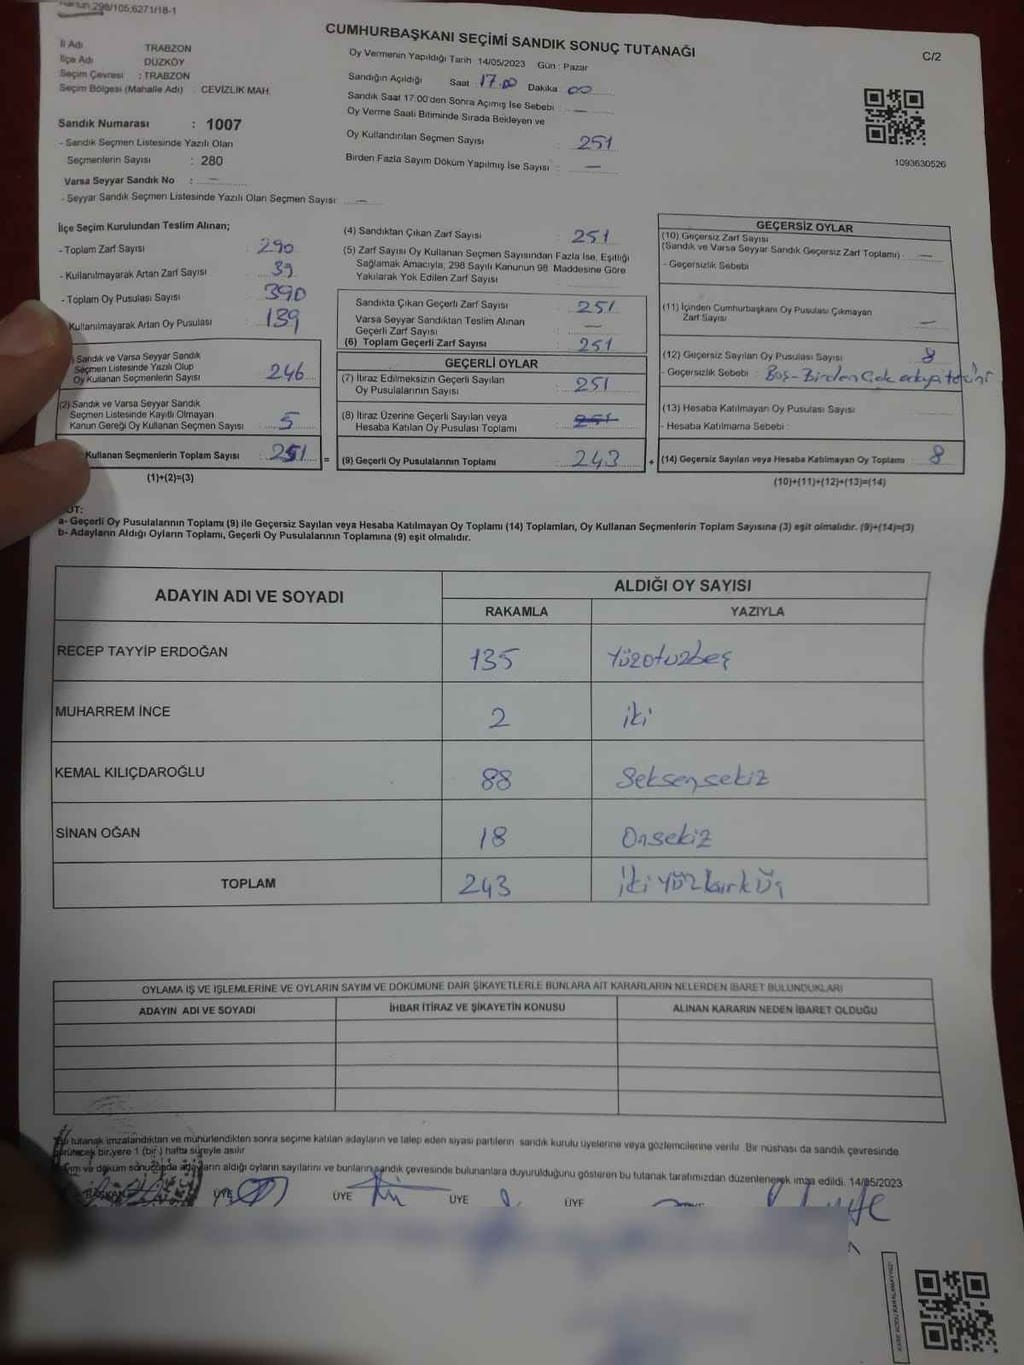 Kanun 298/105;6271/18-1
CUMHURBAŞKANI SEÇİMİ SANDIK SONUÇ TUTANAĞI
C/2
İl Adı TRABZON
İlçe Adı DÜZKÖY
Seçim Çevresi : TRABZON
Seçim Bölgesi (Mahalle Adı) : CEVİZLİK MAH.
Sandık Numarası : 1007
- Sandık Seçmen Listesinde Yazılı Olan
Seçmenlerin Sayısı : 280
Varsa Seyyar Sandık No : —
- Seyyar Sandık Seçmen Listesinde Yazılı Olan Seçmen Sayısı : —
Oy Vermenin Yapıldığı Tarih 14/05/2023 Gün : Pazar
Sandığın Açıldığı Saat 17.00 Dakika 00
Sandık Saat 17:00'den Sonra Açımış İse Sebebi : —
Oy Verme Saati Bitiminde Sırada Bekleyen ve
Oy Kullandırılan Seçmen Sayısı : 251
Birden Fazla Sayım Döküm Yapılmış İse Sayısı : —
1093630526
İlçe Seçim Kurulundan Teslim Alınan;
- Toplam Zarf Sayısı : 290
- Kullanılmayarak Artan Zarf Sayısı : 39
- Toplam Oy Pusulası Sayısı : 390
Kullanılmayarak Artan Oy Pusulası : 139
Sandık ve Varsa Seyyar Sandık
Seçmen Listesinde Yazılı Olup
Oy Kullanan Seçmenlerin Sayısı : 246
(2) Sandık ve Varsa Seyyar Sandık
Seçmen Listesinde Kayıtlı Olmayan
Kanun Gereği Oy Kullanan Seçmen Sayısı : 5
Kullanan Seçmenlerin Toplam Sayısı : 251 =
(1)+(2)=(3)
(4) Sandıktan Çıkan Zarf Sayısı : 251
(5) Zarf Sayısı Oy Kullanan Seçmen Sayısından Fazla İse, Eşitliği
Sağlamak Amacıyla, 298 Sayılı Kanunun 98. Maddesine Göre
Yakılarak Yok Edilen Zarf Sayısı :
Sandıkta Çıkan Geçerli Zarf Sayısı : 251
Varsa Seyyar Sandıktan Teslim Alınan
Geçerli Zarf Sayısı : —
(6) Toplam Geçerli Zarf Sayısı : 251
GEÇERLİ OYLAR
(7) İtiraz Edilmeksizin Geçerli Sayılan
Oy Pusulalarının Sayısı : 251
(8) İtiraz Üzerine Geçerli Sayılan veya
Hesaba Katılan Oy Pusulası Toplamı : 251
(9) Geçerli Oy Pusulalarının Toplamı : 243 +
GEÇERSİZ OYLAR
(10) Geçersiz Zarf Sayısı
(Sandık ve Varsa Seyyar Sandık Geçersiz Zarf Toplamı) : —
- Geçersizlik Sebebi :
(11) İçinden Cumhurbaşkanı Oy Pusulası Çıkmayan
Zarf Sayısı : —
(12) Geçersiz Sayılan Oy Pusulası Sayısı : 8
- Geçersizlik Sebebi : Boş-Birden Çok adaya
(13) Hesaba Katılmayan Oy Pusulası Sayısı :
- Hesaba Katılmama Sebebi :
(14) Geçersiz Sayılan veya Hesaba Katılmayan Oy Toplamı : 8
(10)+(11)+(12)+(13)=(14)
NOT:
a- Geçerli Oy Pusulalarının Toplamı (9) ile Geçersiz Sayılan veya Hesaba Katılmayan Oy Toplamı (14) Toplamları, Oy Kullanan Seçmenlerin Toplam Sayısına (3) eşit olmalıdır. (9)+(14)=(3)
b- Adayların Aldığı Oyların Toplamı, Geçerli Oy Pusulalarının Toplamına (9) eşit olmalıdır.
ADAYIN ADI VE SOYADI ALDIĞI OY SAYISI
RAKAMLA YAZIYLA
RECEP TAYYİP ERDOĞAN 135 Yüzotuzbeş
MUHARREM İNCE 2 iki
KEMAL KILIÇDAROĞLU 88 Seksensekiz
SİNAN OĞAN 18 Onsekiz
TOPLAM 243 İki Yüz kırk Üç
OYLAMA İŞ VE İŞLEMLERİNE VE OYLARIN SAYIM VE DÖKÜMÜNE DAİR ŞİKAYETLERLE BUNLARA AİT KARARLARIN NELERDEN İBARET BULUNDUKLARI
ADAYIN ADI VE SOYADI İHBAR İTİRAZ VE ŞİKAYETİN KONUSU ALINAN KARARIN NEDEN İBARET OLDUĞU
Bu tutanak imzalandıktan ve mühürlendikten sonra seçime katılan adayların ve talep eden siyasi partilerin sandık kurulu üyelerine veya gözlemcilerine verilir. Bir nüshası da sandık çevresinde
görünecek bir yere 1 (bir) hafta süreyle asılır.
Sayım ve döküm sonucunda adayların aldığı oyların sayılarını ve bunların sandık çevresinde bulunanlara duyurulduğunu gösteren bu tutanak tarafımızdan düzenlenerek imza edildi. 14/05/2023
BAŞKAN ÜYE ÜYE ÜYE ÜYE